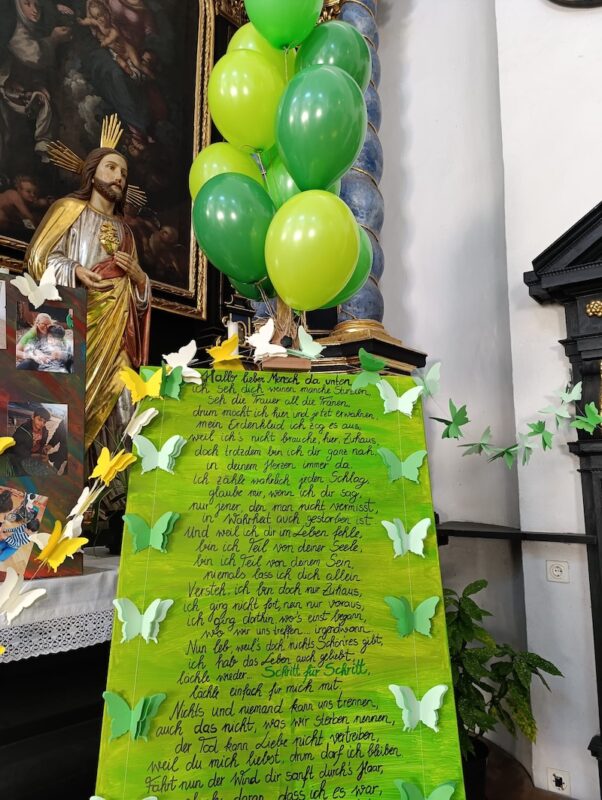 Hallo lieber Mensch da unten
ich seh dich weinen manche Stunden,
seh die Trauer all die Tränen
drum möcht ich hier und jetzt erwähnen
mein Erdenkleid ich zog es aus,
weil ich's nicht brauche, hier, Zuhaus,
doch trotzdem bin ich dir ganz nah,
in deinem Herzen immer da.
Ich zähle wahrlich jeden Schlag,
glaube mir, wenn ich dir sag,
nur jener, den man nicht vermisst,
in Wahrheit auch gestorben ist
Und weil ich dir im Leben fehle,
bin ich Teil von deiner Seele,
bin ich Teil von deinem Sein,
niemals lass ich dich allein
Versteh, ich bin doch nur Zuhaus,
ich ging nicht fort, nein nur voraus,
ich ging dorthin, wo's einst begann,
wo wir uns treffen... irgendwann
Nun leb, weil's doch nichts Schön'res gibt,
ich hab das Leben auch geliebt
lächle wieder... Schritt für Schritt,
lächle einfach für mich mit,
Nichts und niemand kann uns trennen,
auch das nicht, was wir sterben nennen,
der Tod kann Liebe nicht vertreiben,
weil du mich liebst, drum darf ich bleiben.
Fährt nun der Wind dir sanft durch's Haar,
daran, dass ich es war,